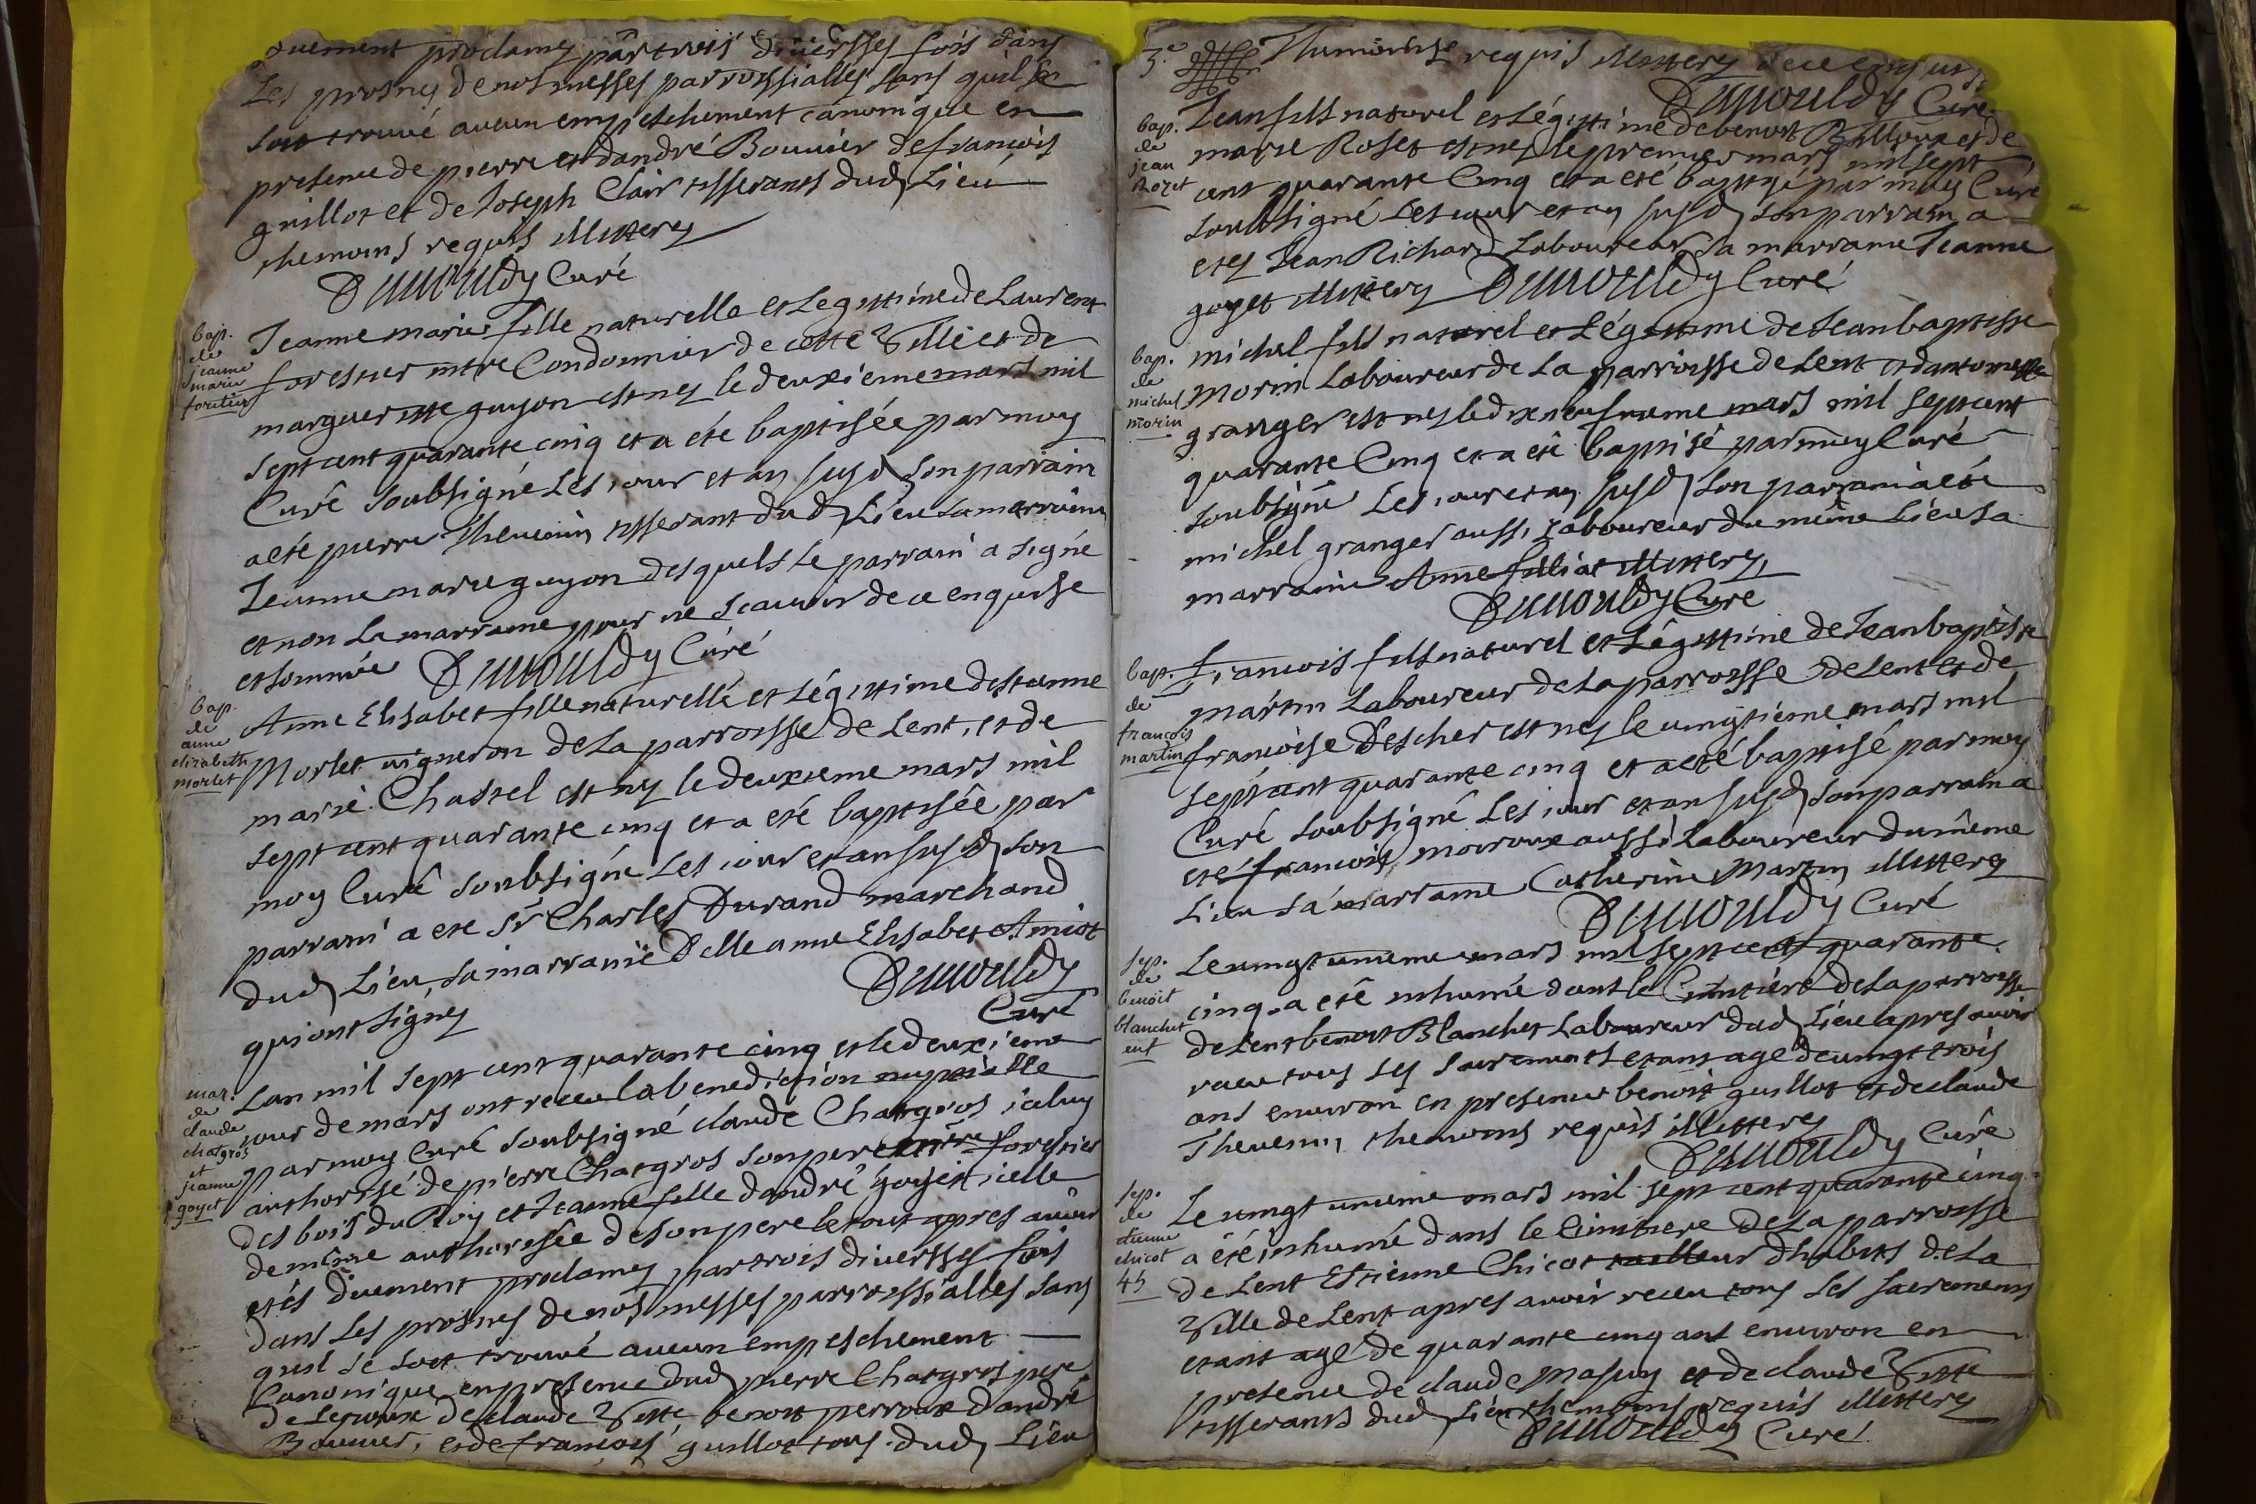 duement proclamez par trois diversses fois dans
Les prosnes de nos messes parroissialles sans quil se
soit trouvé aucun empeschement canonique en
presence de pierre et dandré Bouvier de francois
guillot et de Joseph Clair tisserants dud Lieu
themoins requis illitterez
Curé
bap.
de
jeanne
marie
foretier
Jeanne marie fille naturelle et Legittime de Laurent
forestier mtre Condonnier de cette Ville et de
margueritte guyon est nez le deuxieme mars mil
sept cent quarante cinq et a eté baptisée par moy
Curé soubsigné Les jour et an susd son parrain
a eté pierre Thevenin tisserant dud Lieu sa marraine
Jeanne marie guyon desquels le parrain a signé
et non La marraine pour ne scavoir de ce enquisse
et sommée
Curé
bap.
de
anne
elizabeth
morlet
Anne Elisabet fille naturelle et Légittime destienne
Morlet vigneron de La parroisse de Lent, et de
marie Chastel est nez le deuxieme mars mil
sept cent quarante cinq et a eté baptisée par
moy Curé soubsigné Les jour et an susd son
parrain a eté Sr Charles Durand marchand
dud Lieu, sa marraine Delle anne Elisabet Amiot
qui ont signez
Curé
mar.
de
claude
chatgros
et
jeanne
goyet
Lan mil sept cent quarante cinq et le deuxieme
jour de mars ont receu la benediction nuptialle
par moy Curé soubsigné claude Chatgros iceluy
authorisé de pierre Chatgros son pere forestier
des bois du Roy et Jeanne fille dandré goyet icelle
de même authorisée de son pere le tout apres avoir
etés duement proclamez par trois diversses fois
dans Les prosnes de nos messes parroissialles sans
quil se soit trouvé aucun empeschement
Canonique en presence dud pierre Chatgros pere
de claude Vitte benoit perroux dandré
Bouvier, et de francois guillot tous dud Lieu
3.e
requis illitterez
Curé
bap.
de
jean
Jean fils naturel et Légittime de benoit et de
marie Roset est nez le premier mars mil sept
cent quarante Cinq et a eté baptisé par moy Curé
soubsigné Les jour et an susd son parrain a
eté Jean Richard Laboureur sa marraine Jeanne
goyet illitterez Curé
bap.
de
michel
morin
michel fils naturel et Légittime de Jean baptiste
Morin Laboureur de La parroisse de Lent et dantoinette
granger est nez le dixneufvieme mars mil sept cent
quarante Cinq et a eté baptisé par moy Curé
soubsigné Les jour et an susd son parrain a eté
michel granger aussi Laboureur du même Lieu sa
marraine Anne illitterez
Curé
bap.
de
francois
martin
Francois fils naturel et Légittime de Jean baptiste
martin Laboureur de La parroisse de Lent et de
francoise Descher est nez le vingtieme mars mil
sept cent quarante cinq et a eté baptisé par moy
Curé soubsigné Les jour et an susd son parrain a
eté francois moiroux aussi Laboureur du même
Lieu sa marraine Catherine Martin illitterez
Curé
sep.
de
benoit
blanchet
Le vingt unieme mars mil sept cent quarante
cinq a eté inhumé dans le Cimitiére de La parroisse
de Lent benoit Blanchet Laboureur dud Lieu apres avoir
receu tous ses sacrements etant agé de vingt trois
ans environ en presence benoit guillot et de claude
Thevenin themoins requis illitterez
Curé
sep.
de
etienne
chicot
45
Le vingt unieme mars mil sept cent quarante cinq
a eté inhumé dans le Cimitiere de La parroisse
de Lent Estienne Chicot tailleur dhabits de La
Ville de Lent apres avoir receu tous Les sacremens
etant agé de quarante cinq ans environ en
presence de claude Masuy et de claude Vitte
tisserants dud Lieu themoins requis illitterez
Curé